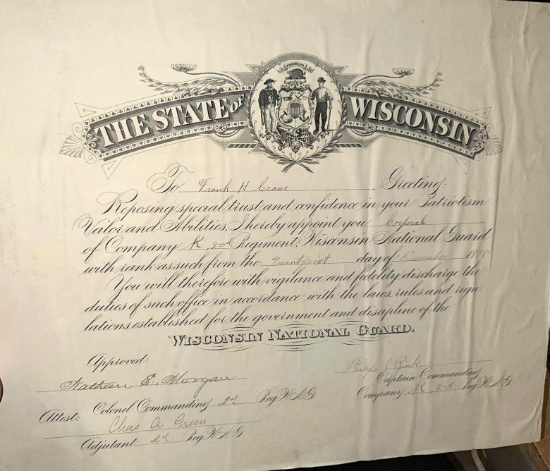 THE STATE OF WISCONSIN
To Frank H Crane Greeting:
Reposing special trust and confidence in your Patriotism
Valor and Abilities, I hereby appoint you Corporal
of Company K 2nd Regiment, Wisconsin National Guard
with rank as such from the Twenty first day of December 18
You will therefore with vigilance and fidelity discharge the
duties of such office in accordance with the laws, rules and regu
lations established for the government and discipline of the
WISCONSIN NATIONAL GUARD.
Approved:
Nathan E. Morgan
Colonel Commanding 2d Reg. W.N.G
Attest: Chas A Green
Adjutant 2d Reg. W.N.G
Captain Commanding
Company K 2nd Reg. W.N.G